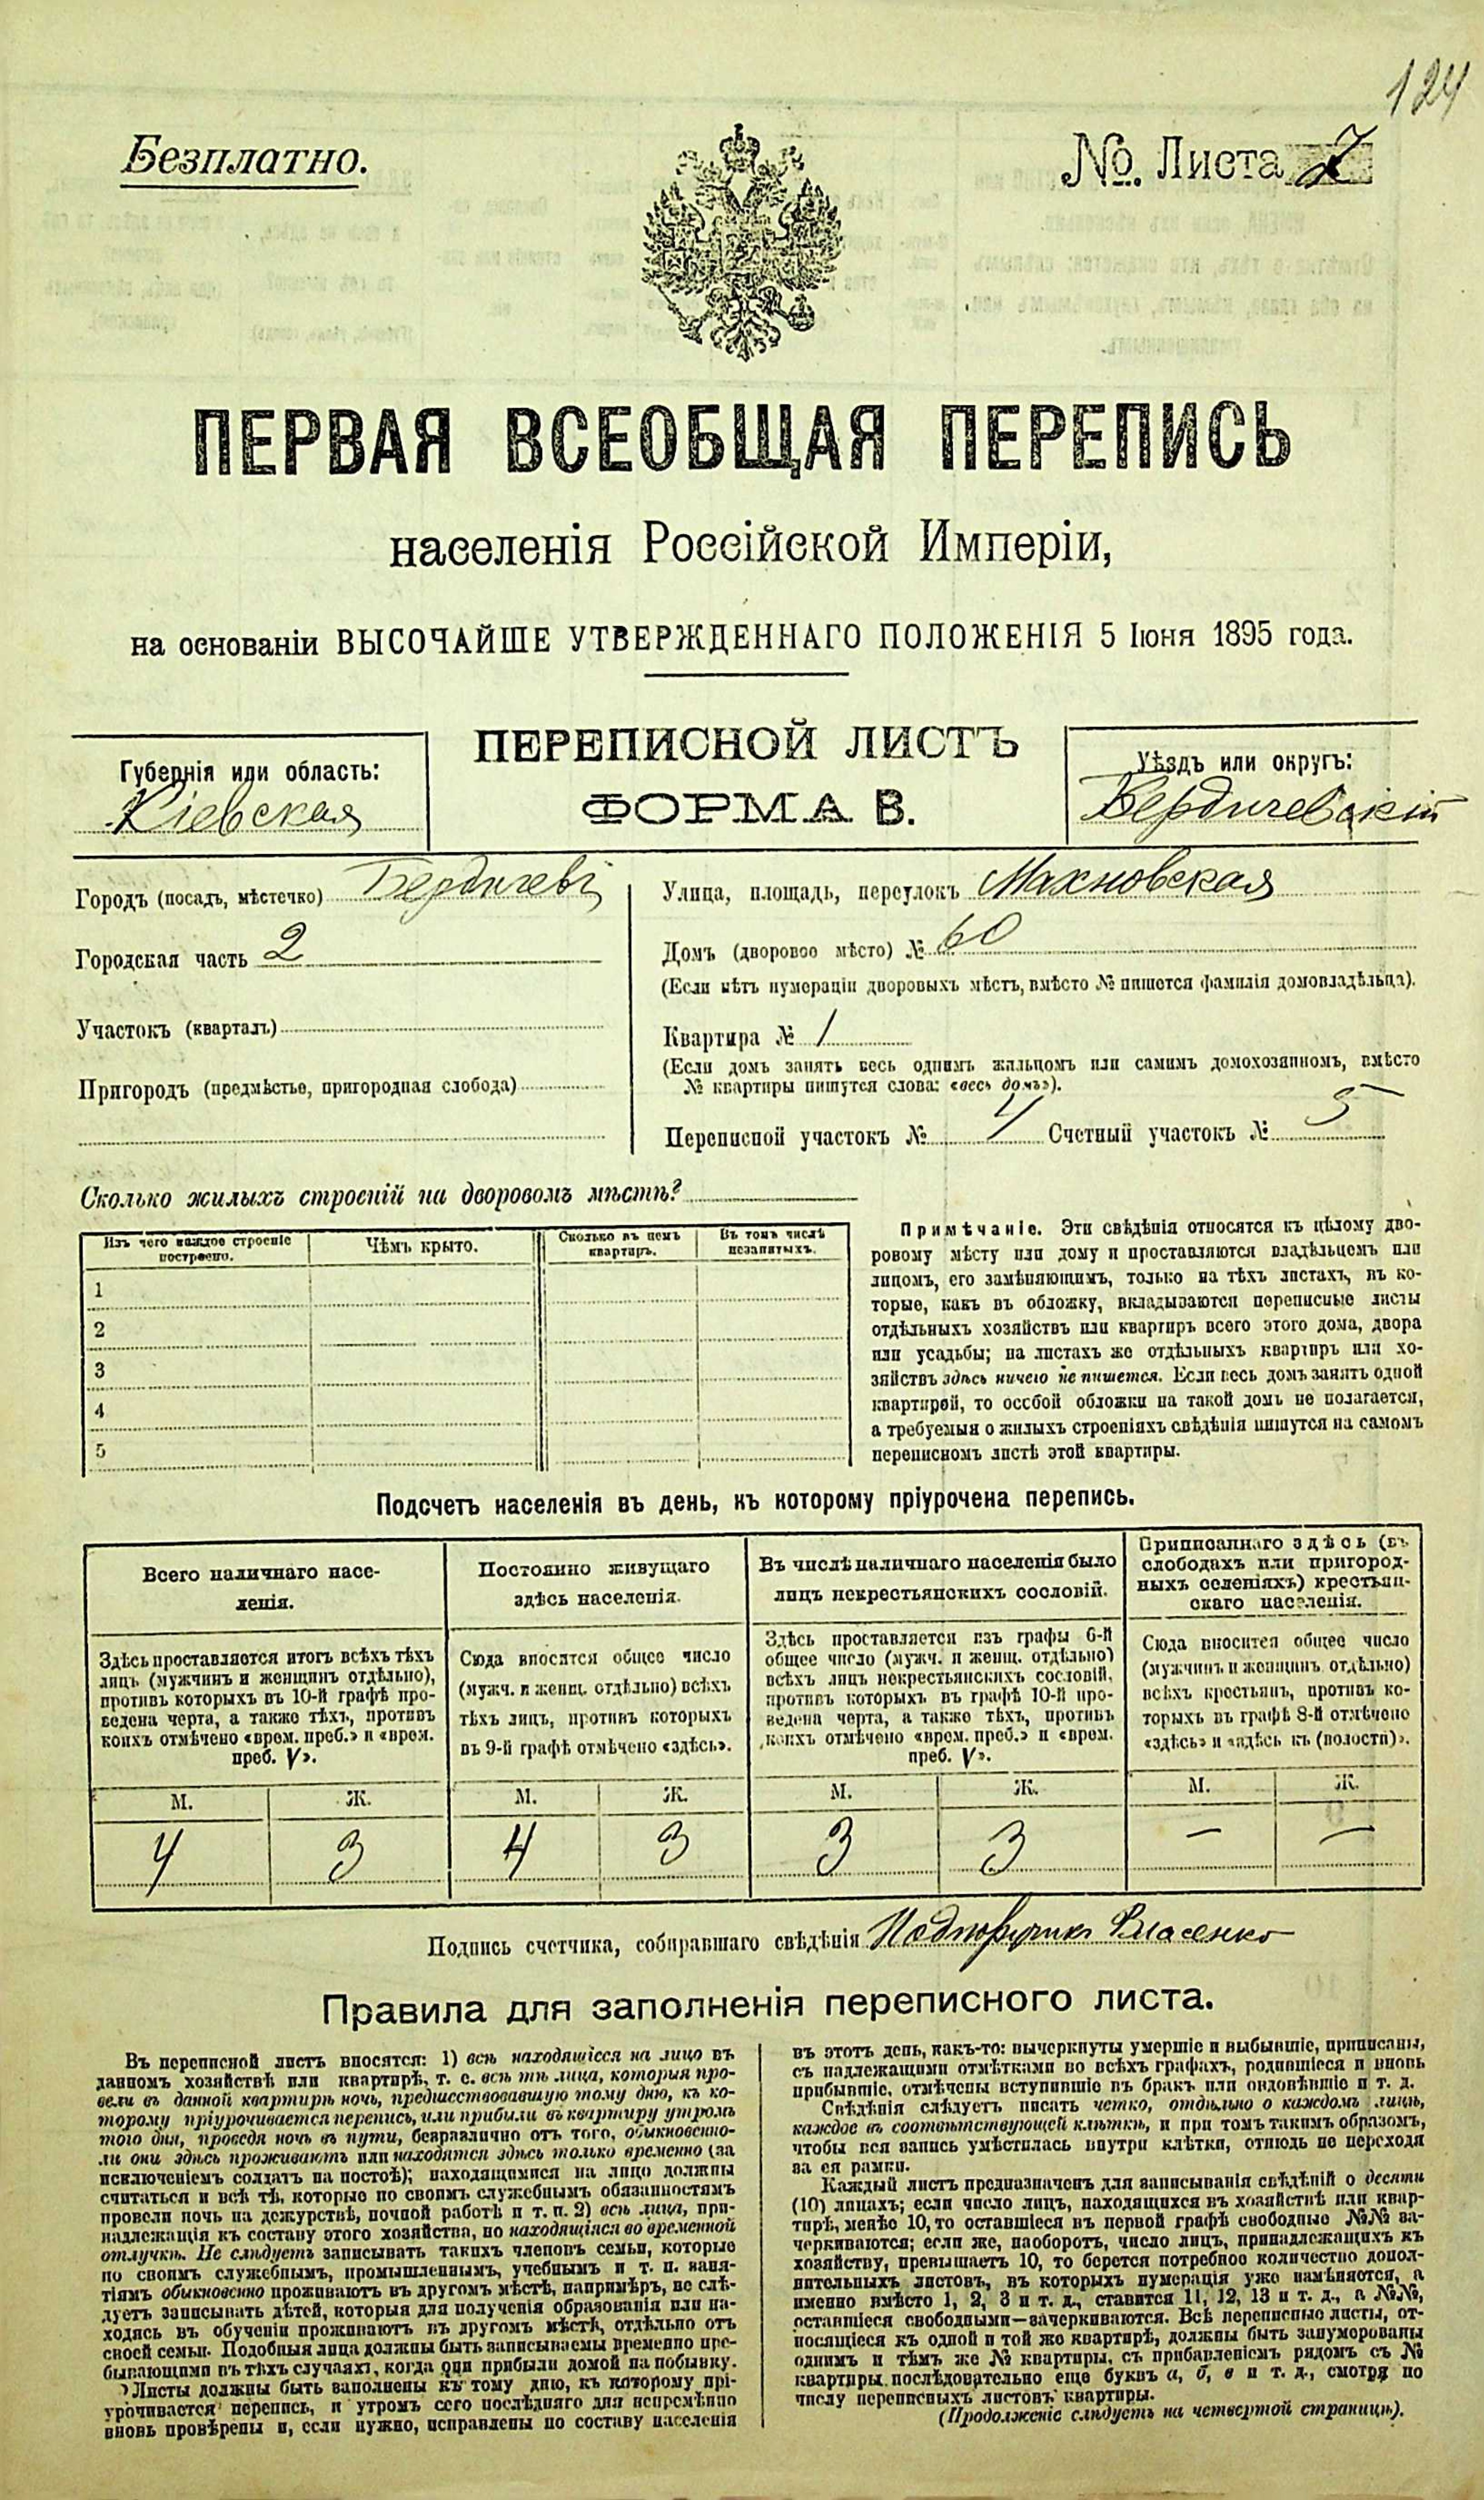 124
Безплатно.
№ Листа 7
ПЕРВАЯ ВСЕОБЩАЯ ПЕРЕПИСЬ
населенія Россійской Имперіи,
на основаніи ВЫСОЧАЙШЕ УТВЕРЖДЕННАГО ПОЛОЖЕНІЯ 5 Іюня 1895 года.
ПЕРЕПИСНОЙ ЛИСТЪ
ФОРМА В.
Губернія или область:
Кіевская
Уѣздъ или округъ:
Бердичевскій
Городъ (посадъ, мѣстечко) Бердичевъ
Городская часть 2
Участокъ (кварталъ)
Пригородъ (предмѣстье, пригородная слобода)
Улица, площадь, переулокъ Махновская
Домъ (дворовое мѣсто) № 60
(Если нѣтъ нумераціи дворовыхъ мѣстъ, вмѣсто № пишется фамилія домовладѣльца).
Квартира № 1
(Если домъ занятъ весь однимъ жильцомъ или самимъ домохозяиномъ, вмѣсто
№ квартиры пишутся слова: «весь домъ»).
Переписной участокъ № 4 Счетный участокъ № 5
Сколько жилыхъ строеній на дворовомъ мѣстѣ?
Изъ чего каждое строеніе
построено.
Чѣмъ крыто.
Сколько въ немъ
квартиръ.
Въ томъ числѣ
незанятыхъ.
1
2
3
4
5
Примѣчаніе. Эти свѣдѣнія относятся къ цѣлому дво-
ровому мѣсту или дому и проставляются владѣльцемъ или
лицомъ, его замѣняющимъ, только на тѣхъ листахъ, въ ко-
торые, какъ въ обложку, вкладываются переписные листы
отдѣльныхъ хозяйствъ или квартиръ всего этого дома, двора
или усадьбы; на листахъ же отдѣльныхъ квартиръ или хо-
зяйствъ здѣсь ничего не пишется. Если весь домъ занятъ одной
квартирой, то особой обложки на такой домъ не полагается,
а требуемыя о жилыхъ строеніяхъ свѣдѣнія пишутся на самомъ
переписномъ листѣ этой квартиры.
Подсчетъ населенія въ день, къ которому пріурочена перепись.
Всего наличнаго насе-
ленія.
Здѣсь проставляется итогъ всѣхъ тѣхъ
лицъ (мужчинъ и женщинъ отдѣльно),
противъ которыхъ въ 10-й графѣ про-
ведена черта, а также тѣхъ, противъ
коихъ отмѣчено «врем. преб.» и «врем.
преб. V».
М. Ж.
4 3
Постоянно живущаго
здѣсь населенія.
Сюда вносится общее число
(мужч. и женщ. отдѣльно) всѣхъ
тѣхъ лицъ, противъ которыхъ
въ 9-й графѣ отмѣчено «здѣсь».
М. Ж.
4 3
Въ числѣ наличнаго населенія было
лицъ некрестьянскихъ сословій.
Здѣсь проставляется изъ графы 6-й
общее число (мужч. и женщ. отдѣльно)
всѣхъ лицъ некрестьянскихъ сословій,
противъ которыхъ въ графѣ 10-й про-
ведена черта, а также тѣхъ, противъ
коихъ отмѣчено «врем. преб.» и «врем.
преб. V».
М. Ж.
3 3
Приписаннаго здѣсь (въ
слободахъ или пригород-
ныхъ селеніяхъ) крестьян-
скаго населенія.
Сюда вносится общее число
(мужчинъ и женщинъ отдѣльно)
всѣхъ крестьянъ, противъ ко-
торыхъ въ графѣ 8-й отмѣчено
«здѣсь» и «здѣсь къ (волости)».
М. Ж.
— —
Подпись счетчика, собиравшаго свѣдѣнія Подпоручикъ Власенко
Правила для заполненія переписного листа.
Въ переписной листъ вносятся: 1) всѣ находящіеся на лицо въ
данномъ хозяйствѣ или квартирѣ, т. е. всѣ тѣ лица, которыя про-
вели въ данной квартирѣ ночь, предшествовавшую тому дню, къ ко-
торому пріурочивается перепись, или прибыли въ квартиру утромъ
того дня, проведя ночь въ пути, безразлично отъ того, обыкновенно-
ли они здѣсь проживаютъ или находятся здѣсь только временно (за
исключеніемъ солдатъ на постоѣ); находящимися на лицо должны
считаться и всѣ тѣ, которые по своимъ служебнымъ обязанностямъ
провели ночь на дежурствѣ, ночной работѣ и т. п. 2) всѣ лица, при-
надлежащія къ составу этого хозяйства, но находящіяся во временной
отлучкѣ. Не слѣдуетъ записывать такихъ членовъ семьи, которые
по своимъ служебнымъ, промышленнымъ, учебнымъ и т. п. заня-
тіямъ обыкновенно проживаютъ въ другомъ мѣстѣ, напримѣръ, не слѣ-
дуетъ записывать дѣтей, которыя для полученія образованія или на-
ходясь въ обученіи проживаютъ въ другомъ мѣстѣ, отдѣльно отъ
своей семьи. Подобныя лица должны быть записываемы временно пре-
бывающими въ тѣхъ случаяхъ, когда они прибыли домой на побывку.
Листы должны быть заполнены къ тому дню, къ которому прі-
урочивается перепись, и утромъ сего послѣдняго дня непремѣнно
вновь провѣрены и, если нужно, исправлены по составу населенія
въ этотъ день, какъ-то: вычеркнуты умершіе и выбывшіе, приписаны,
съ надлежащими отмѣтками во всѣхъ графахъ, родившіеся и вновь
прибывшіе, отмѣчены вступившіе въ бракъ или овдовѣвшіе и т. д.
Свѣдѣнія слѣдуетъ писать четко, отдѣльно о каждомъ лицѣ,
каждое въ соотвѣтствующей клѣткѣ, и при томъ такимъ образомъ,
чтобы вся запись умѣстилась внутри клѣтки, отнюдь не переходя
за ея рамки.
Каждый листъ предназначенъ для записыванія свѣдѣній о десяти
(10) лицахъ; если число лицъ, находящихся въ хозяйствѣ или квар-
тирѣ, менѣе 10, то оставшіеся въ первой графѣ свободные №№ за-
черкиваются; если же, наоборотъ, число лицъ, принадлежащихъ къ
хозяйству, превышаетъ 10, то берется потребное количество допол-
нительныхъ листовъ, въ которыхъ нумерація уже измѣняется, а
именно вмѣсто 1, 2, 3 и т. д., ставится 11, 12, 13 и т. д., а №№,
оставшіеся свободными—зачеркиваются. Всѣ переписные листы, от-
носящіеся къ одной и той же квартирѣ, должны быть занумерованы
однимъ и тѣмъ же № квартиры, съ прибавленіемъ рядомъ съ №
квартиры послѣдовательно еще буквъ а, б, в и т. д., смотря по
числу переписныхъ листовъ квартиры.
(Продолженіе слѣдуетъ на четвертой страницѣ).